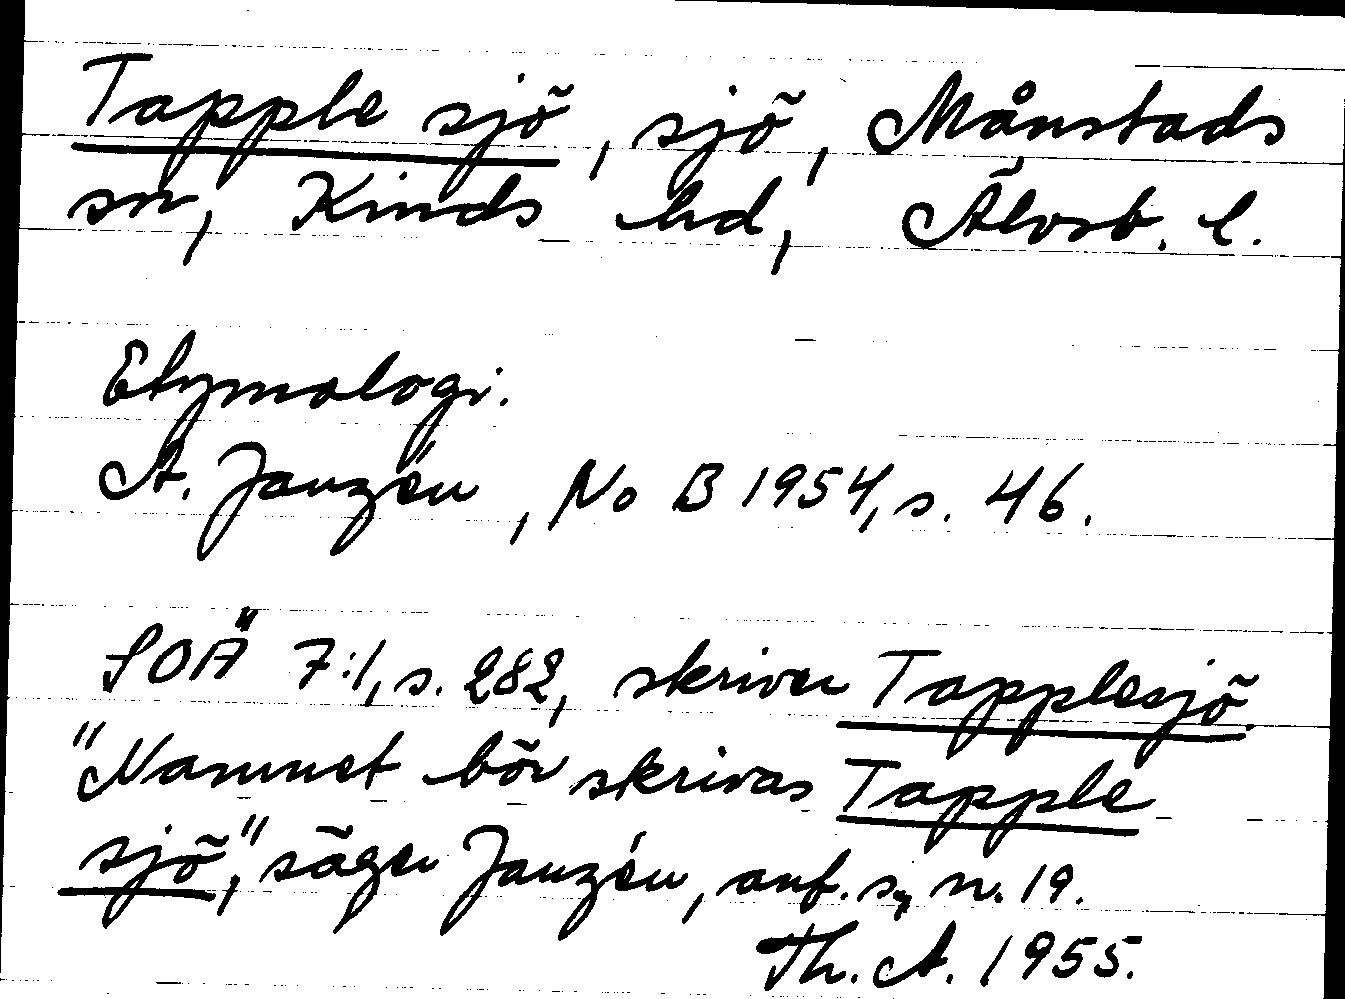 Tapple sjö, sjö, Månstads
sn, Kinds hd, Älvsb. l.
Etymologi.
A. Janzén, No B 1954, s. 46.
SOÄ 7:1, s. 282, skriver Tapplesjö.
"Namnet bör skrivas Tapple
sjö", säger Janzén, anf. s., n. 19.
Th. A. 1955.